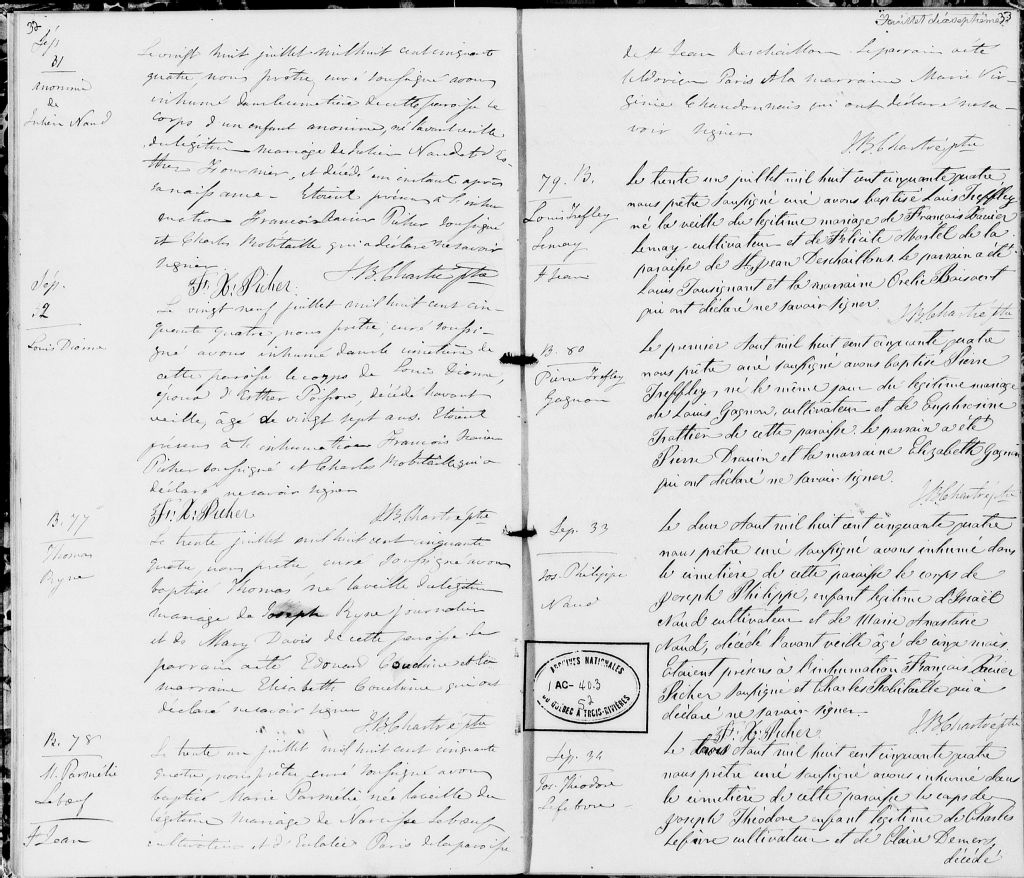 Sép.
31
anonime
de
Julien Naud
Le vingt huit juillet mil huit cent cinquante
quatre nous prêtre, curé soussigné avons
inhumé dans le cimetière de cette paroisse le
corps d'un enfant anonime, né l'avant veille
du légitime mariage de Julien Naud et d'Es-
ther Fournier, et décédé un instant après
sa naissance. Etoient présens à l'inhu-
mation François Xavier Picher soussigné
et Charles Robitaille qui a déclaré ne savoir
signer
Fr. X. Picher. J. B. Chartré ptre
Sép.
32
Louis Dionne
Le vingt neuf juillet mil huit cent cin-
quante quatre, nous prêtre curé soussi-
gné avons inhumé dans le cimetière de
cette paroisse le corps de Louis Dionne,
époux d'Esther Poisson, décédé l'avant
veille, âgé de vingt sept ans. Etoient
présens à l'inhumation François Xavier
Picher soussigné et Charles Robitaille qui a
déclaré ne savoir signer
Fr. X. Picher J. B. Chartré ptre
B. 77
Thomas
Ryne
Le trente juillet mil huit cent cinquante
quatre, nous prêtre, curé soussigné avons
baptisé Thomas né la veille du légitime
mariage de Joseph Ryne journalier
et de Mary Davis de cette paroisse Le
parrain a été Edouard Couchine et la
marraine Elisabeth Couchine qui ont
déclaré ne savoir signer
J. B. Chartré ptre
B. 78
M. Parmélie
Lebœuf
St Jean
Le trente un juillet mil huit cent cinquante
quatre, nous prêtre, curé soussigné avons
baptisé Marie Parmélie née la veille du
légitime mariage de Narcisse Lebœuf
cultivateur et d'Eulalie Paris de la paroisse
Feuillet dix septième 33
de St Jean Deschaillons. Le parrain a été
Ludovica Paris et la marraine Marie Vir-
ginie Chandonnais qui ont déclaré ne sa-
voir signer
J. B. Chartré ptre
79. B.
Louis Treffley
Lemay
St Jean
Le trente un juillet mil huit cent cinquante quatre
nous prêtre soussigné curé avons baptisé Louis Treffley
né la veille du légitime mariage de François Xavier
Lemay cultivateur et de Félicité Martel de la
paroisse de St Jean Deschaillons. Le parrain a été
Louis Tousignant et la marraine Orelie Boisvert
qui ont déclaré ne savoir signer.
J. B. Chartré ptre
B. 80
Pierre Treffley
Gagnon
Le premier Aout mil huit cent cinquante quatre
nous prêtre curé soussigné avons baptisé Pierre
Treffley, né le même jour du légitime mariage
de Louis Gagnon, cultivateur et de Euphrosine
Trottier de cette paroisse. Le parrain a été
Pierre Drouin et la marraine Elizabeth Gagnon
qui ont déclaré ne savoir signer.
J. B. Chartré ptre
Sep. 33
Jos. Philippe
Naud
Le deux Aout mil huit cent cinquante quatre
nous prêtre curé soussigné avons inhumé dans
le cimetière de cette paroisse le corps de
Joseph Philippe, enfant légitime d'Israël
Naud cultivateur et de Marie Anastasie
Naud, décédé l'avant veille âgé de cinq mois
Etaient présens à l'inhumation François Xavier
Picher soussigné et Charles Robitaille qui a
déclaré ne savoir signer.
Fr. X. Picher J. B. Chartré ptre
ARCHIVES NATIONALES
AC-403
92
DU QUÉBEC À TROIS-RIVIÈRES
Sép. 34
Jos. Théodore
Lefebvre
Le trois Aout mil huit cent cinquante quatre
nous prêtre curé soussigné avons inhumé dans
le cimetière de cette paroisse le corps de
Joseph Théodore enfant légitime de Charles
Lefebvre cultivateur et de Claire Demers,
décédé